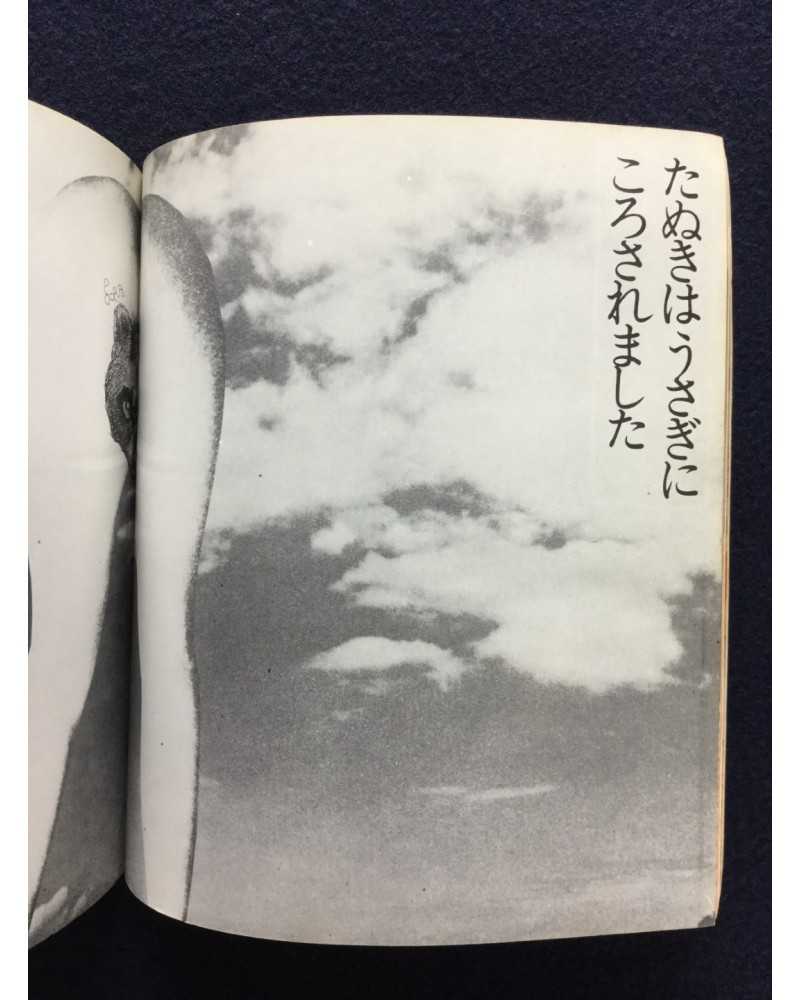 たぬきはうさぎに
ころされました